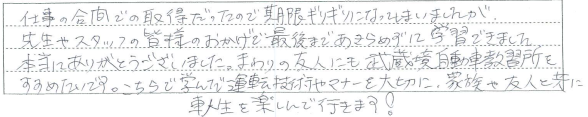 仕事の合間での取得だったので期限ギリギリになってしまいましたが、
先生やスタッフの皆様のおかげで最後まであきらめずに学習できました
本当にありがとうございました。まわりの友人にも武蔵境自動車教習所を
すすめたいです。こちらで学んだ運転技術やマナーを大切に、家族や友人と共に
車人生を楽しんで行きます!